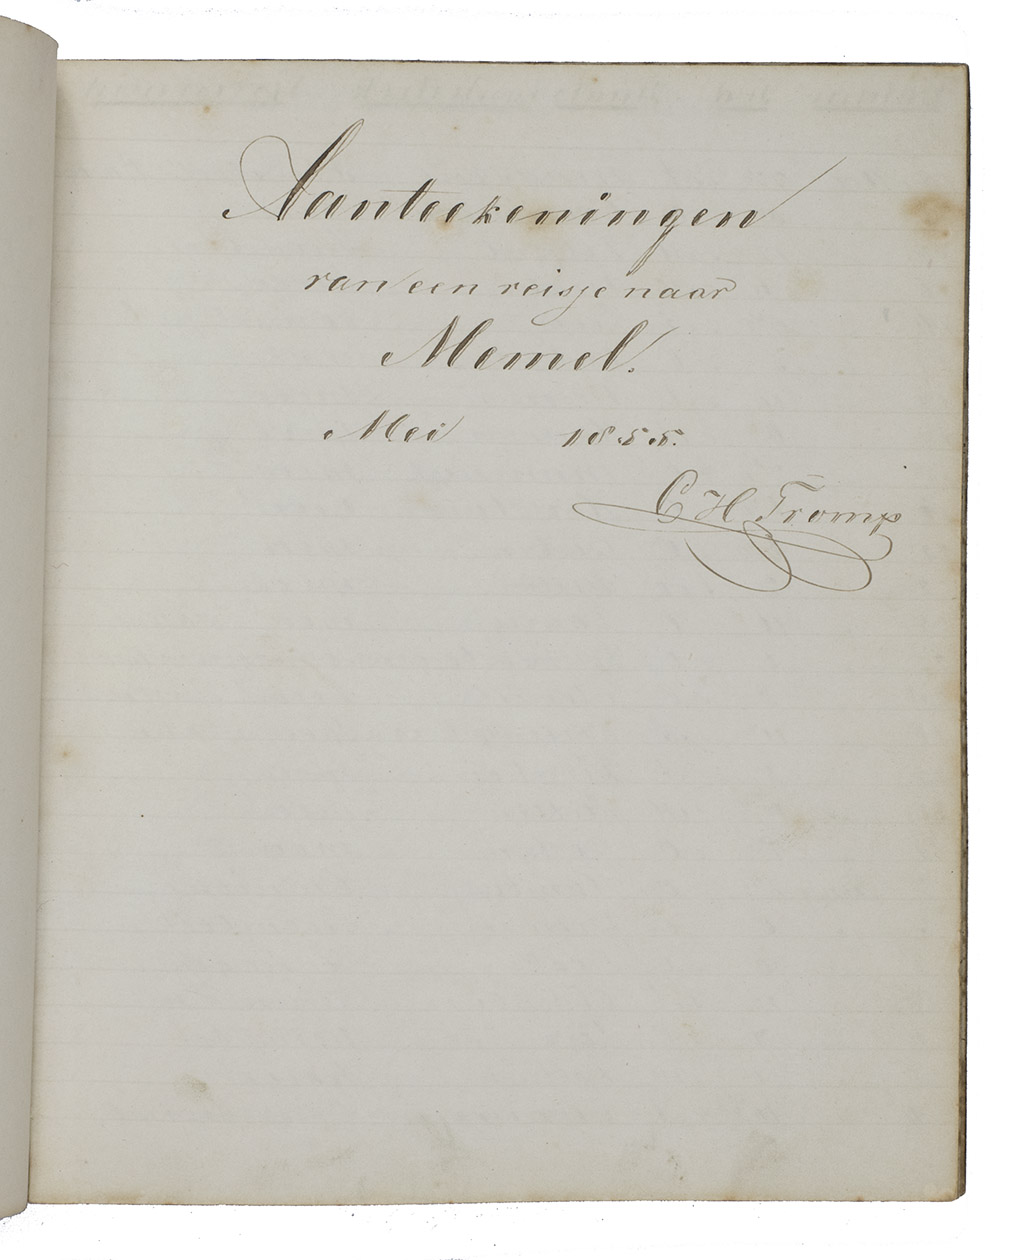 Aanteekeningen
van een reisje naar
Memel.
Mei 1855.
C H Tromp